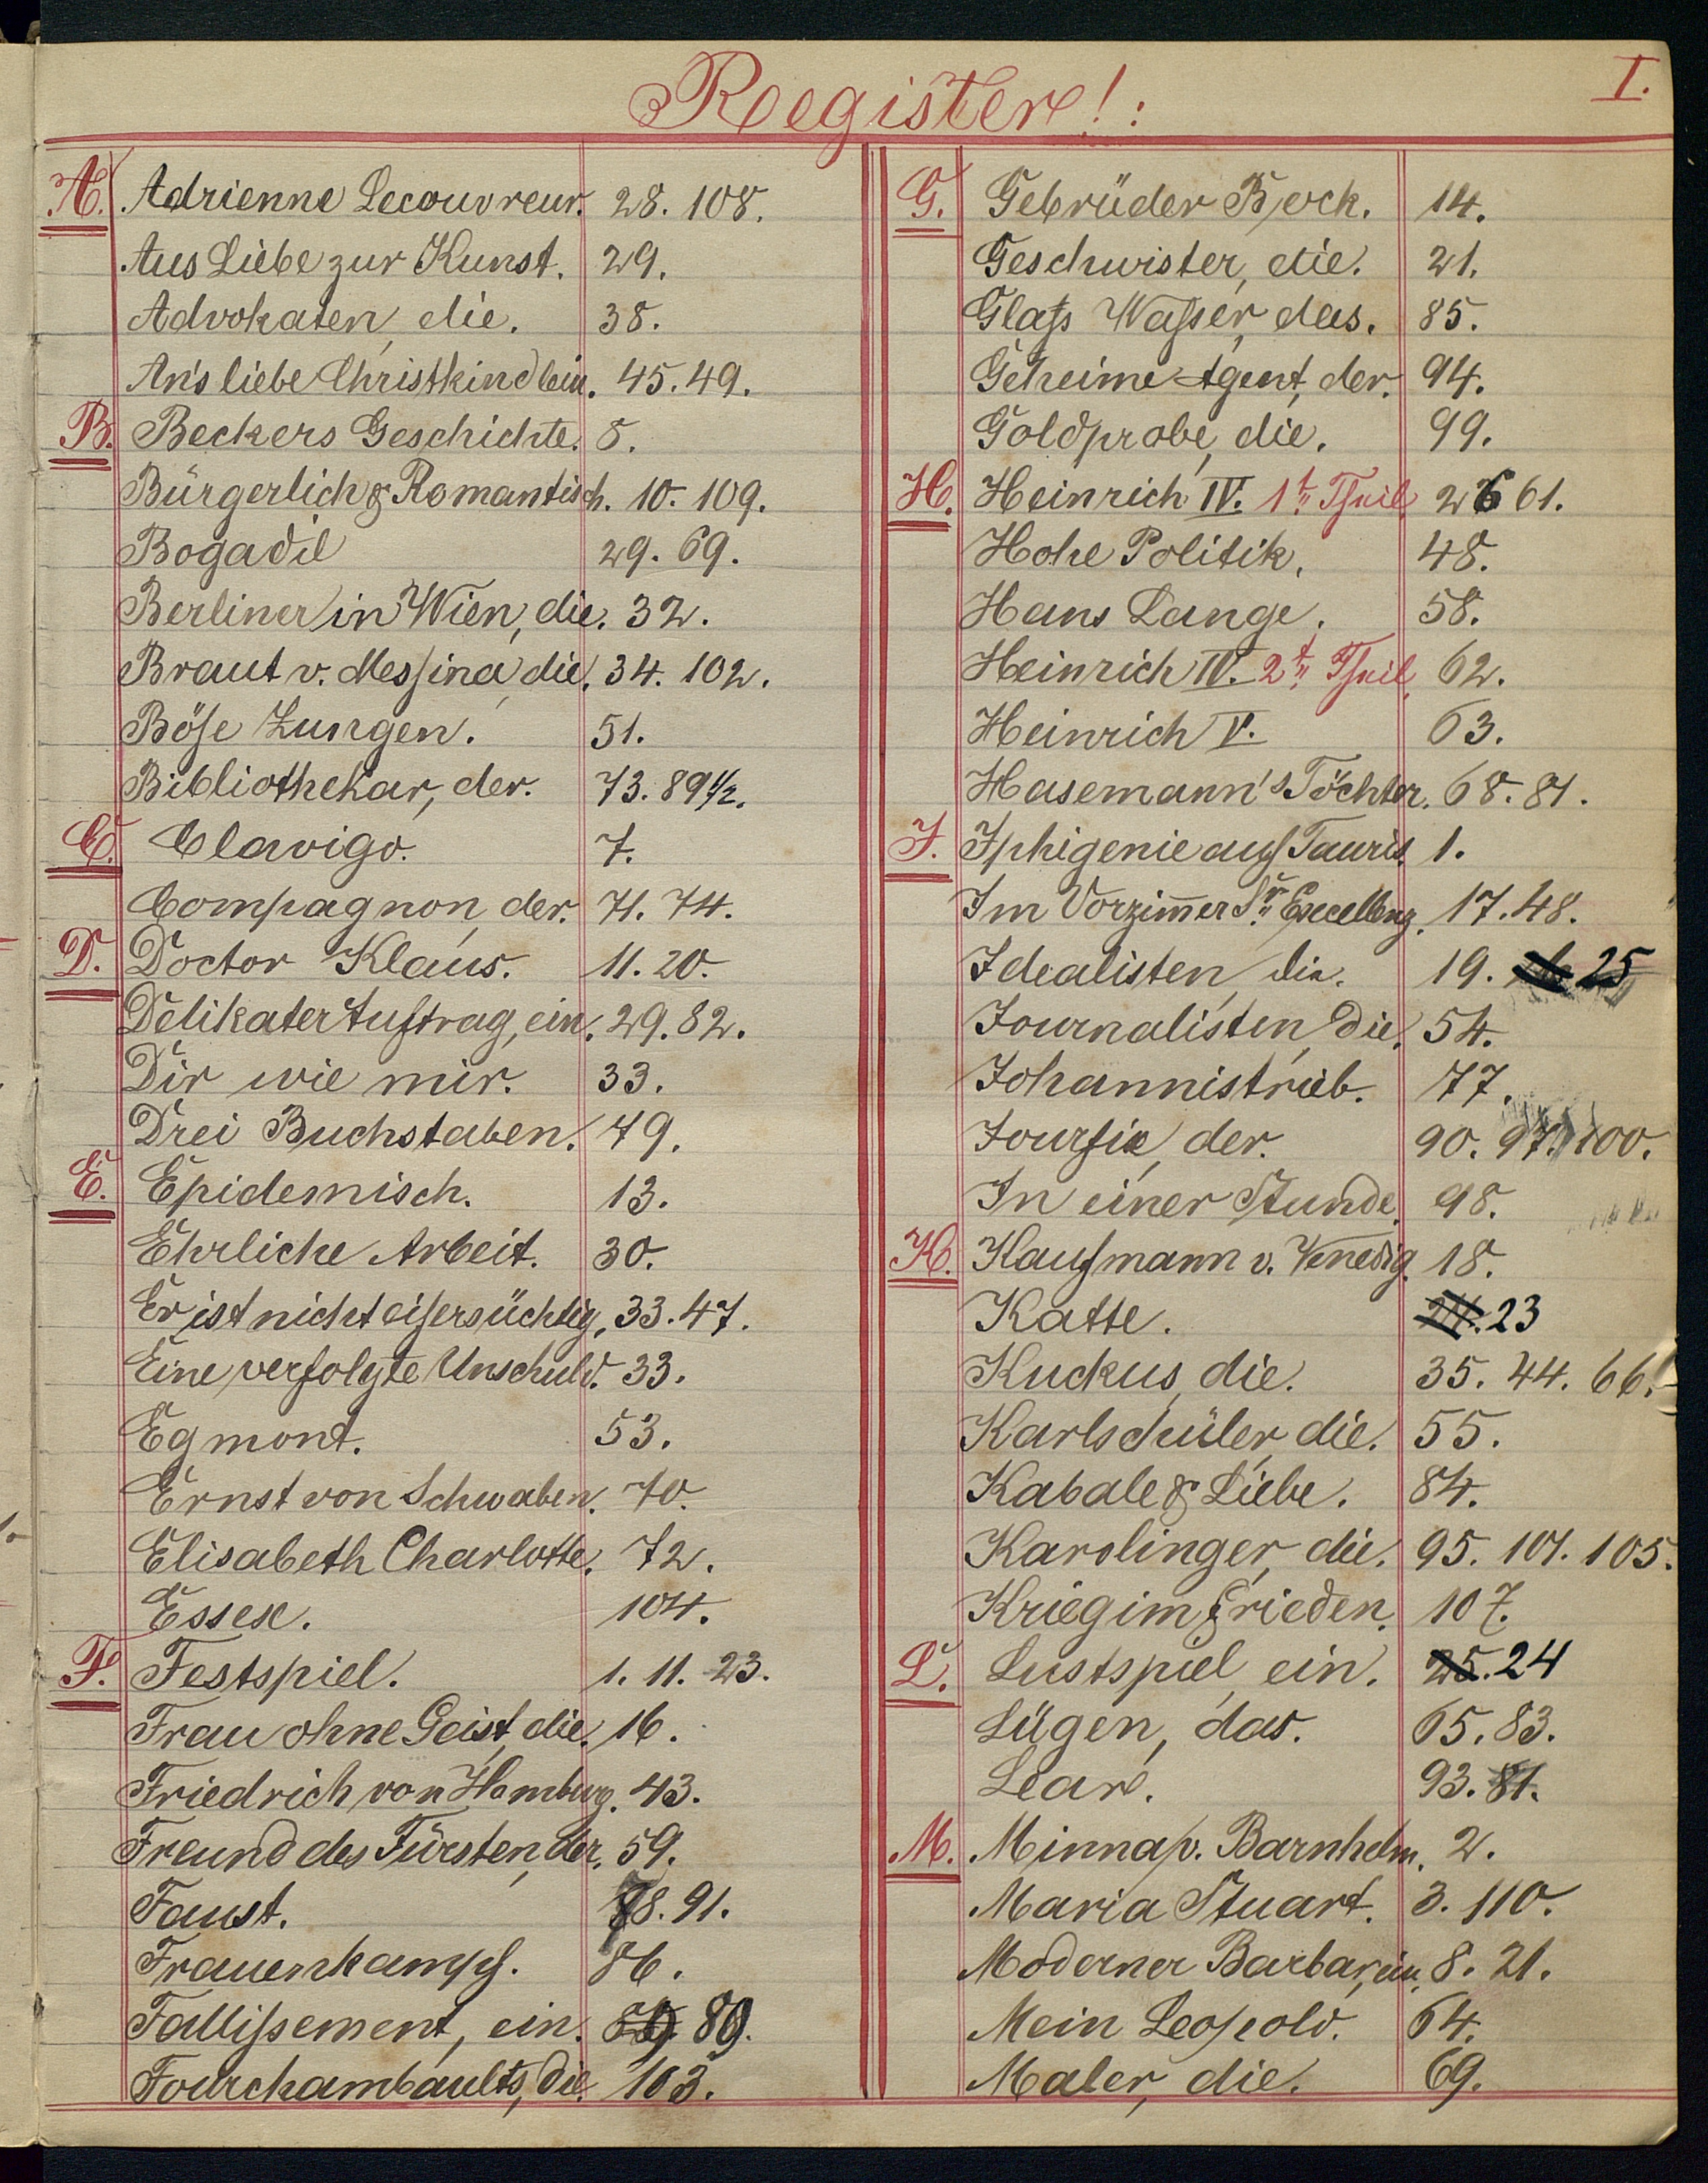 Register!:
I.
A. Adrienne Lecouvreur. 28. 108.
Aus Liebe zur Kunst. 29.
Advokaten, die. 38.
An's liebe Christkindlein. 45. 49.
B. Beckers Geschichte. 8.
Bürgerlich & Romantisch. 10. 109.
Bogadil 29. 69.
Berliner in Wien, die. 32.
Braut v. Meſsina, die. 34. 102.
Böſe Zungen. 51.
Bibliothekar, der. 73. 89 1/2.
C. Clavigo. 7.
Compagnon, der. 71. 74.
D. Doctor Klaus. 11. 20.
Delikater Auftrag, ein. 29. 82.
Dir wie mir. 33.
Drei Buchstaben. 79.
E. Epidemisch. 13.
Ehrliche Arbeit. 30.
Er ist nicht eifersüchtig. 33. 47.
Eine verfolgte Unschuld. 33.
Egmont. 53.
Ernst von Schwaben. 70.
Elisabeth Charlotte. 72.
Essex. 104.
F. Festspiel. 1. 11. 23.
Frau ohne Geist, die. 16.
Friedrich von Homburg. 43.
Freund des Fürsten, der. 59.
Faust. 78. 91.
Frauenkampf. 86.
Falliſsement, ein. 89.
Fourchambaults, die. 103.
G. Gebrüder Bock. 14.
Geschwister, die. 21.
Glaſs Waſser, das. 85.
Geheime Agent, der. 94.
Goldprobe, die. 99.
H. Heinrich IV. 1t. Theil. 26 61.
Hohe Politik. 48.
Hans Lange. 58.
Heinrich IV. 2t. Theil. 62.
Heinrich V. 63.
Hasemann's Töchter. 68. 81.
I. Iphigenie auf Tauris. 1.
Im Vorzim̄er Sr. Excellenz. 17. 48.
Idealisten, die. 19. 25
Journalisten, die. 54.
Johannistrieb. 77.
Jourfix, der. 90. 97. 100.
In einer Stunde. 98.
K. Kaufmann v. Venedig. 18.
Katte. 23
Kuckus, die. 35. 44. 66.
Karlschüler, die. 55.
Kabale & Liebe. 84.
Karolinger, die. 95. 101. 105.
Krieg im Frieden. 107.
L. Lustspiel, ein. 25. 24
Lügen, das. 65. 83.
Lear. 93. 81.
M. Minna v. Barnhelm. 2.
Maria Stuart. 3. 110.
Moderner Barbar, ein. 8. 21.
Mein Leopold. 64.
Maler, die. 69.